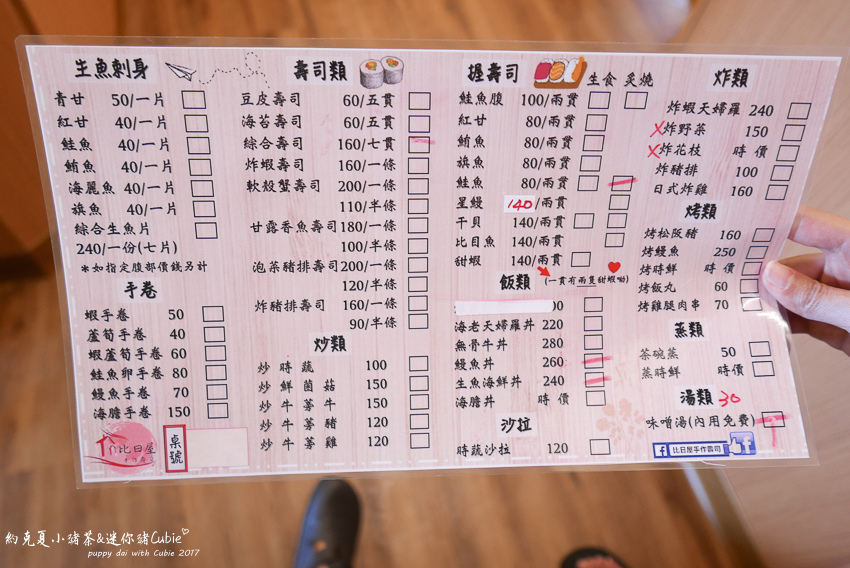 生魚刺身
青甘 50/一片
紅甘 40/一片
鮭魚 40/一片
鮪魚 40/一片
海麗魚 40/一片
旗魚 40/一片
綜合生魚片
240/一份(七片)
*如指定腹部價錢另計
手卷
蝦手卷 50
蘆筍手卷 40
蝦蘆筍手卷 60
鮭魚卵手卷 80
鰻魚手卷 70
海膽手卷 150
比日屋
桌號
壽司類
豆皮壽司 60/五貫
海苔壽司 60/五貫
綜合壽司 160/七貫
炸蝦壽司 160/一條
軟殼蟹壽司 200/一條
110/半條
甘露香魚壽司180/一條
100/半條
泡菜豬排壽司200/一條
120/半條
炸豬排壽司 160/一條
90/半條
炒類
炒時蔬 100
炒鮮菌菇 150
炒牛蒡牛 150
炒牛蒡豬 120
炒牛蒡雞 120
握壽司 生食 炙燒
鮭魚腹 100/兩貫
紅甘 80/兩貫
鮪魚 80/兩貫
旗魚 80/兩貫
鮭魚 80/兩貫
星鰻 140/兩貫
干貝 140/兩貫
比目魚 140/兩貫
甜蝦 140/兩貫
(一貫有兩隻甜蝦喲)
飯類
海老天婦羅丼 220
無骨牛丼 280
鰻魚丼 260
生魚海鮮丼 240
海膽丼 時價
沙拉
時蔬沙拉 120
炸類
炸蝦天婦羅 240
炸野菜 150
炸花枝 時價
炸豬排 100
日式炸雞 160
烤類
烤松阪豬 160
烤鰻魚 250
烤時鮮 時價
烤飯丸 60
烤雞腿肉串 70
蒸類
茶碗蒸 50
蒸時鮮 時價
湯類 30
味噌湯(內用免費)
比日屋手作壽司
約克夏小豬茶&迷你豬Cubie
puppy dai with Cubie 2017